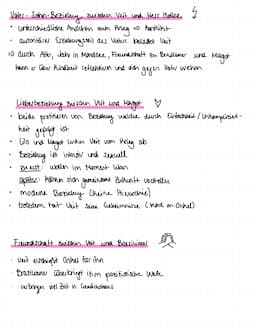 Vater-Sohn-Beziehung zwischen Veit und Herr Kolbe
• unterschiedliche Ansichten zum Krieg ⇒ Konflikt
• autoritärer Erziehungsstil des Vaters belastet Veit
⇒ durch Afra, Jahr in Mondsee, Freundschaft zu Brasilianer und Margot
kann er über Kindheit reflektieren und sich gegen Vater wehren
Liebesbeziehung zwischen Veit und Margot
• beide profitieren von Beziehung welche durch Einfachheit / Unkompliziert-
heit geprägt ist
• Lilo und Margot lenken Veit vom Krieg ab
• Beziehung ist intensiv und sexuell
• zuerst: wollen im Moment leben
• später: können sich gemeinsame Zukunft vorstellen
• moderne Beziehung (keine Hierarchie)
• trotzdem hat Veit seine Geheimnisse (Mord an Onkel)
Freundschaft zwischen Veit und Brasilianer
• Veit
Onkel für ihn
• Brasilianer überbringt ihm pazifistische Werte
• verbringen viel Zeit in Gewächshaus